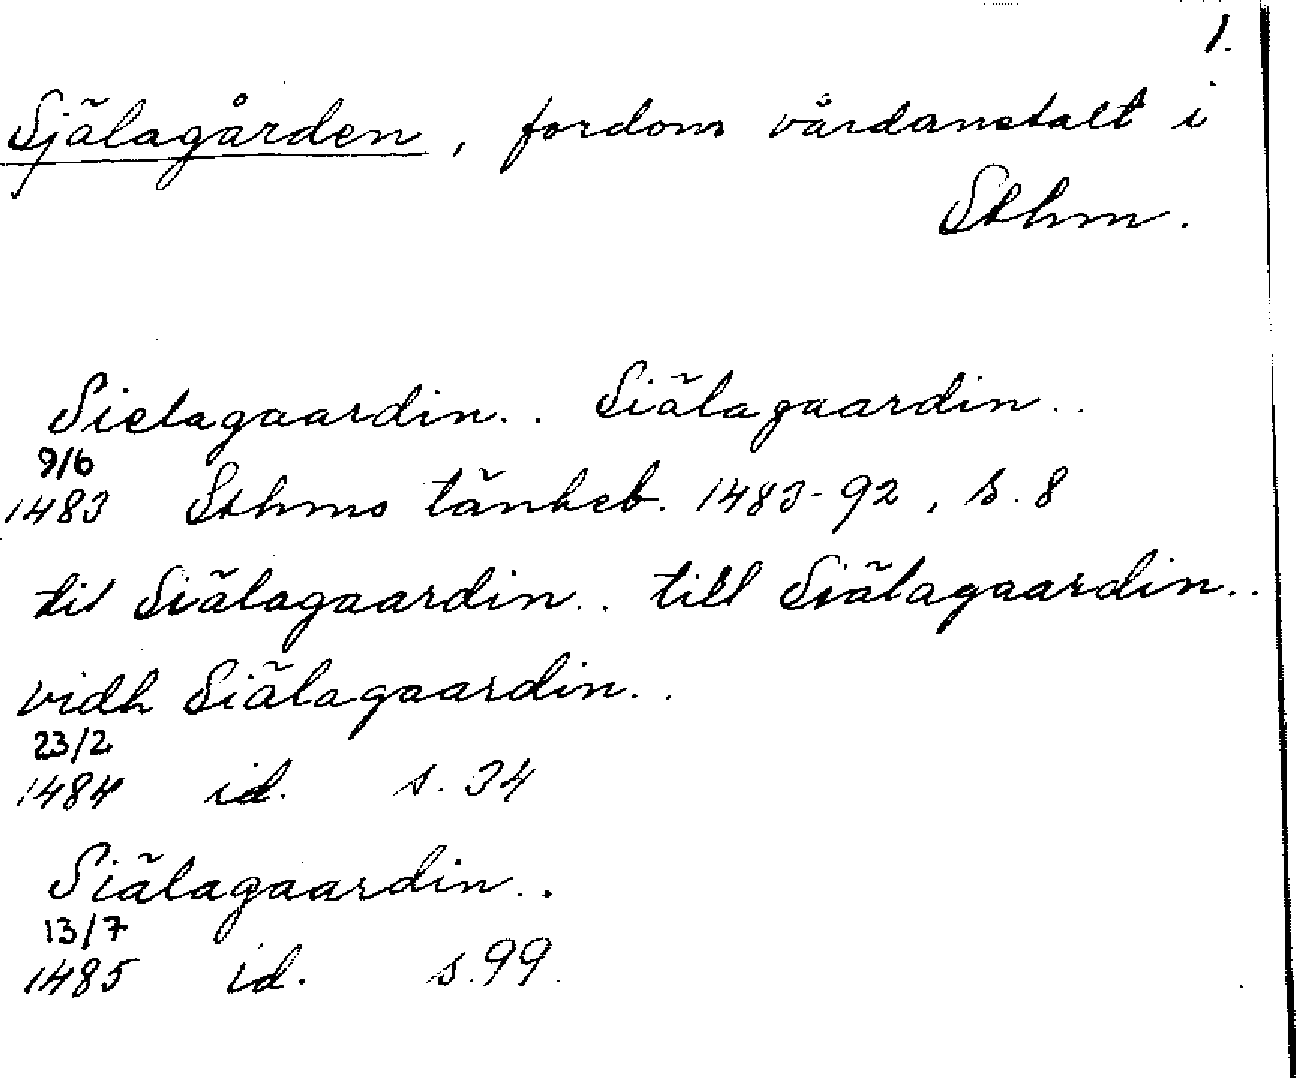 1.
Själagården, fordom vårdanstalt i
Sthm.
Sielagaardin.. Siälagaardin..
9/6
1483 Sthms tänkeb. 1483-92, s. 8
til Siälagaardin.. till Siälagaardin..
vidh Siälagaardin..
23/2
1484 id. s. 34
Siälagaardin..
13/7
1485 id. s. 99.